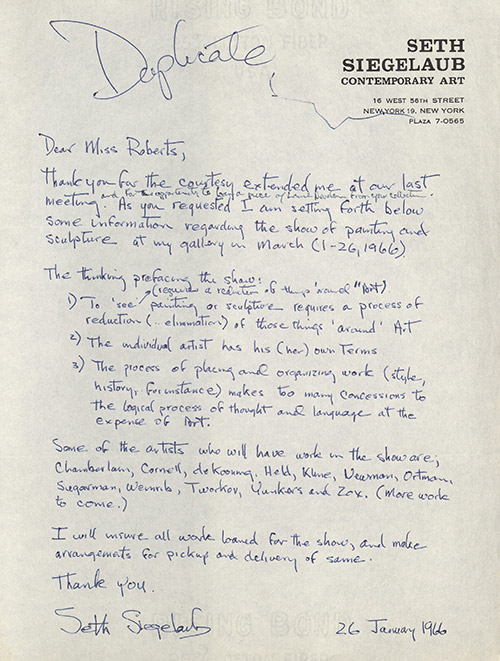 Duplicate
SETH
SIEGELAUB
CONTEMPORARY ART
16 WEST 56TH STREET
NEW YORK 19, NEW YORK
PLAZA 7-0565
Dear Miss Roberts,
Thank you for the courtesy extended me at our last
and for the opportunity to a piece of from your collection.
meeting. As you requested I am setting forth below
some information regarding the show of painting and
sculpture at my gallery in March (1-26, 1966)
The thinking prefacing the show:
(requires a reduction of things 'around' "Art)
1) To 'see' painting or sculpture requires a process of
reduction (.. elimination) of those things 'around' Art
2) The individual artist has his (her) own Terms
3) The process of placing and organizing work (style,
history, for instance) makes too many concessions to
the logical process of thought and language at the
expense of Art.
Some of the artists who will have work in the show are;
Chamberlain, Cornell, de Kooning, Held, Kline, Newman, Ortman,
Sugarman, Weinrib, Tworkov, Yunkers and Zox. (More work
to come.)
I will insure all work loaned for the show, and make
arrangements for pickup and delivery of same.
Thank you.
Seth Siegelaub
26 January 1966